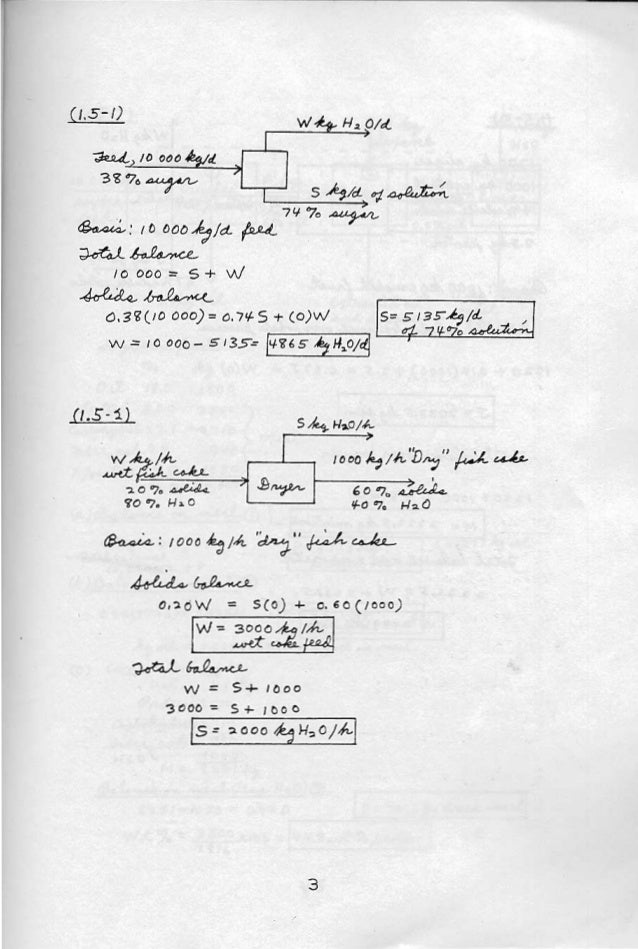 (1.5-1)
W kg H2O/d
Feed, 10 000 kg/d
38% sugar
S kg/d of solution
74% sugar
Basis: 10 000 kg/d feed
Total balance
10 000 = S + W
Solids balance
0.38(10 000) = 0.74 S + (0)W
S = 5135 kg/d
of 74% solution
W = 10 000 - 5135 = 4865 kg H2O/d
(1.5-2)
S kg H2O/h
W kg/h
wet fish cake
20% solids
80% H2O
Dryer
1000 kg/h "Dry" fish cake
60% solids
40% H2O
Basis: 1000 kg/h "dry" fish cake
Solids balance
0.20W = S(0) + 0.60(1000)
W = 3000 kg/h
wet cake feed
Total balance
W = S + 1000
3000 = S + 1000
S = 2000 kg H2O/h
3